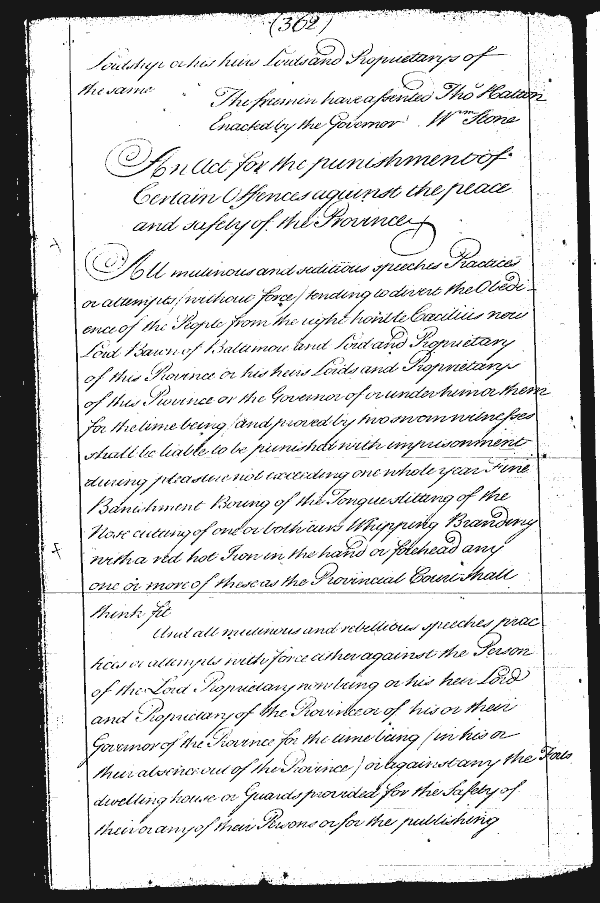 (362)
Lordship or his heirs Lords and Proprietarys of
the same
The freemen have assented Tho.s Hatton
Enacted by the Governor W.m Stone
An Act for the punishment of
Certain Offences against the peace
and safety of the Province
All mutinous and seditious speeches Practices
or attempts (without force) tending to divert the Obedi-
ence of the People from the right hon:ble Caecilius now
Lord Baron of Baltimore and Lord and Proprietary
of this Province or his heirs Lords and Proprietarys
of this Province or the Governor of or under him or them
for the time being (and proved by two sworn witnesses
shall be liable to be punished with imprisonment
during pleasure not exceeding one whole year Fine
Banishment Boring of the Tongue slitting of the
Nose cutting of one or both ears Whipping Branding
with a red hot Iron in the hand or forehead any
one or more of these as the Provincial Court shall
think fit
And all mutinous and rebellious speeches prac
tices or attempts with force either against the Person
of the Lord Proprietary now being or his heir Lord
and Proprietary of the Province or of his or their
Governor of the Province for the time being (in his or
their absence out of the Province) or against any the Forts
dwelling house or Guards provided for the Safety of
their or any of their Persons or for the publishing